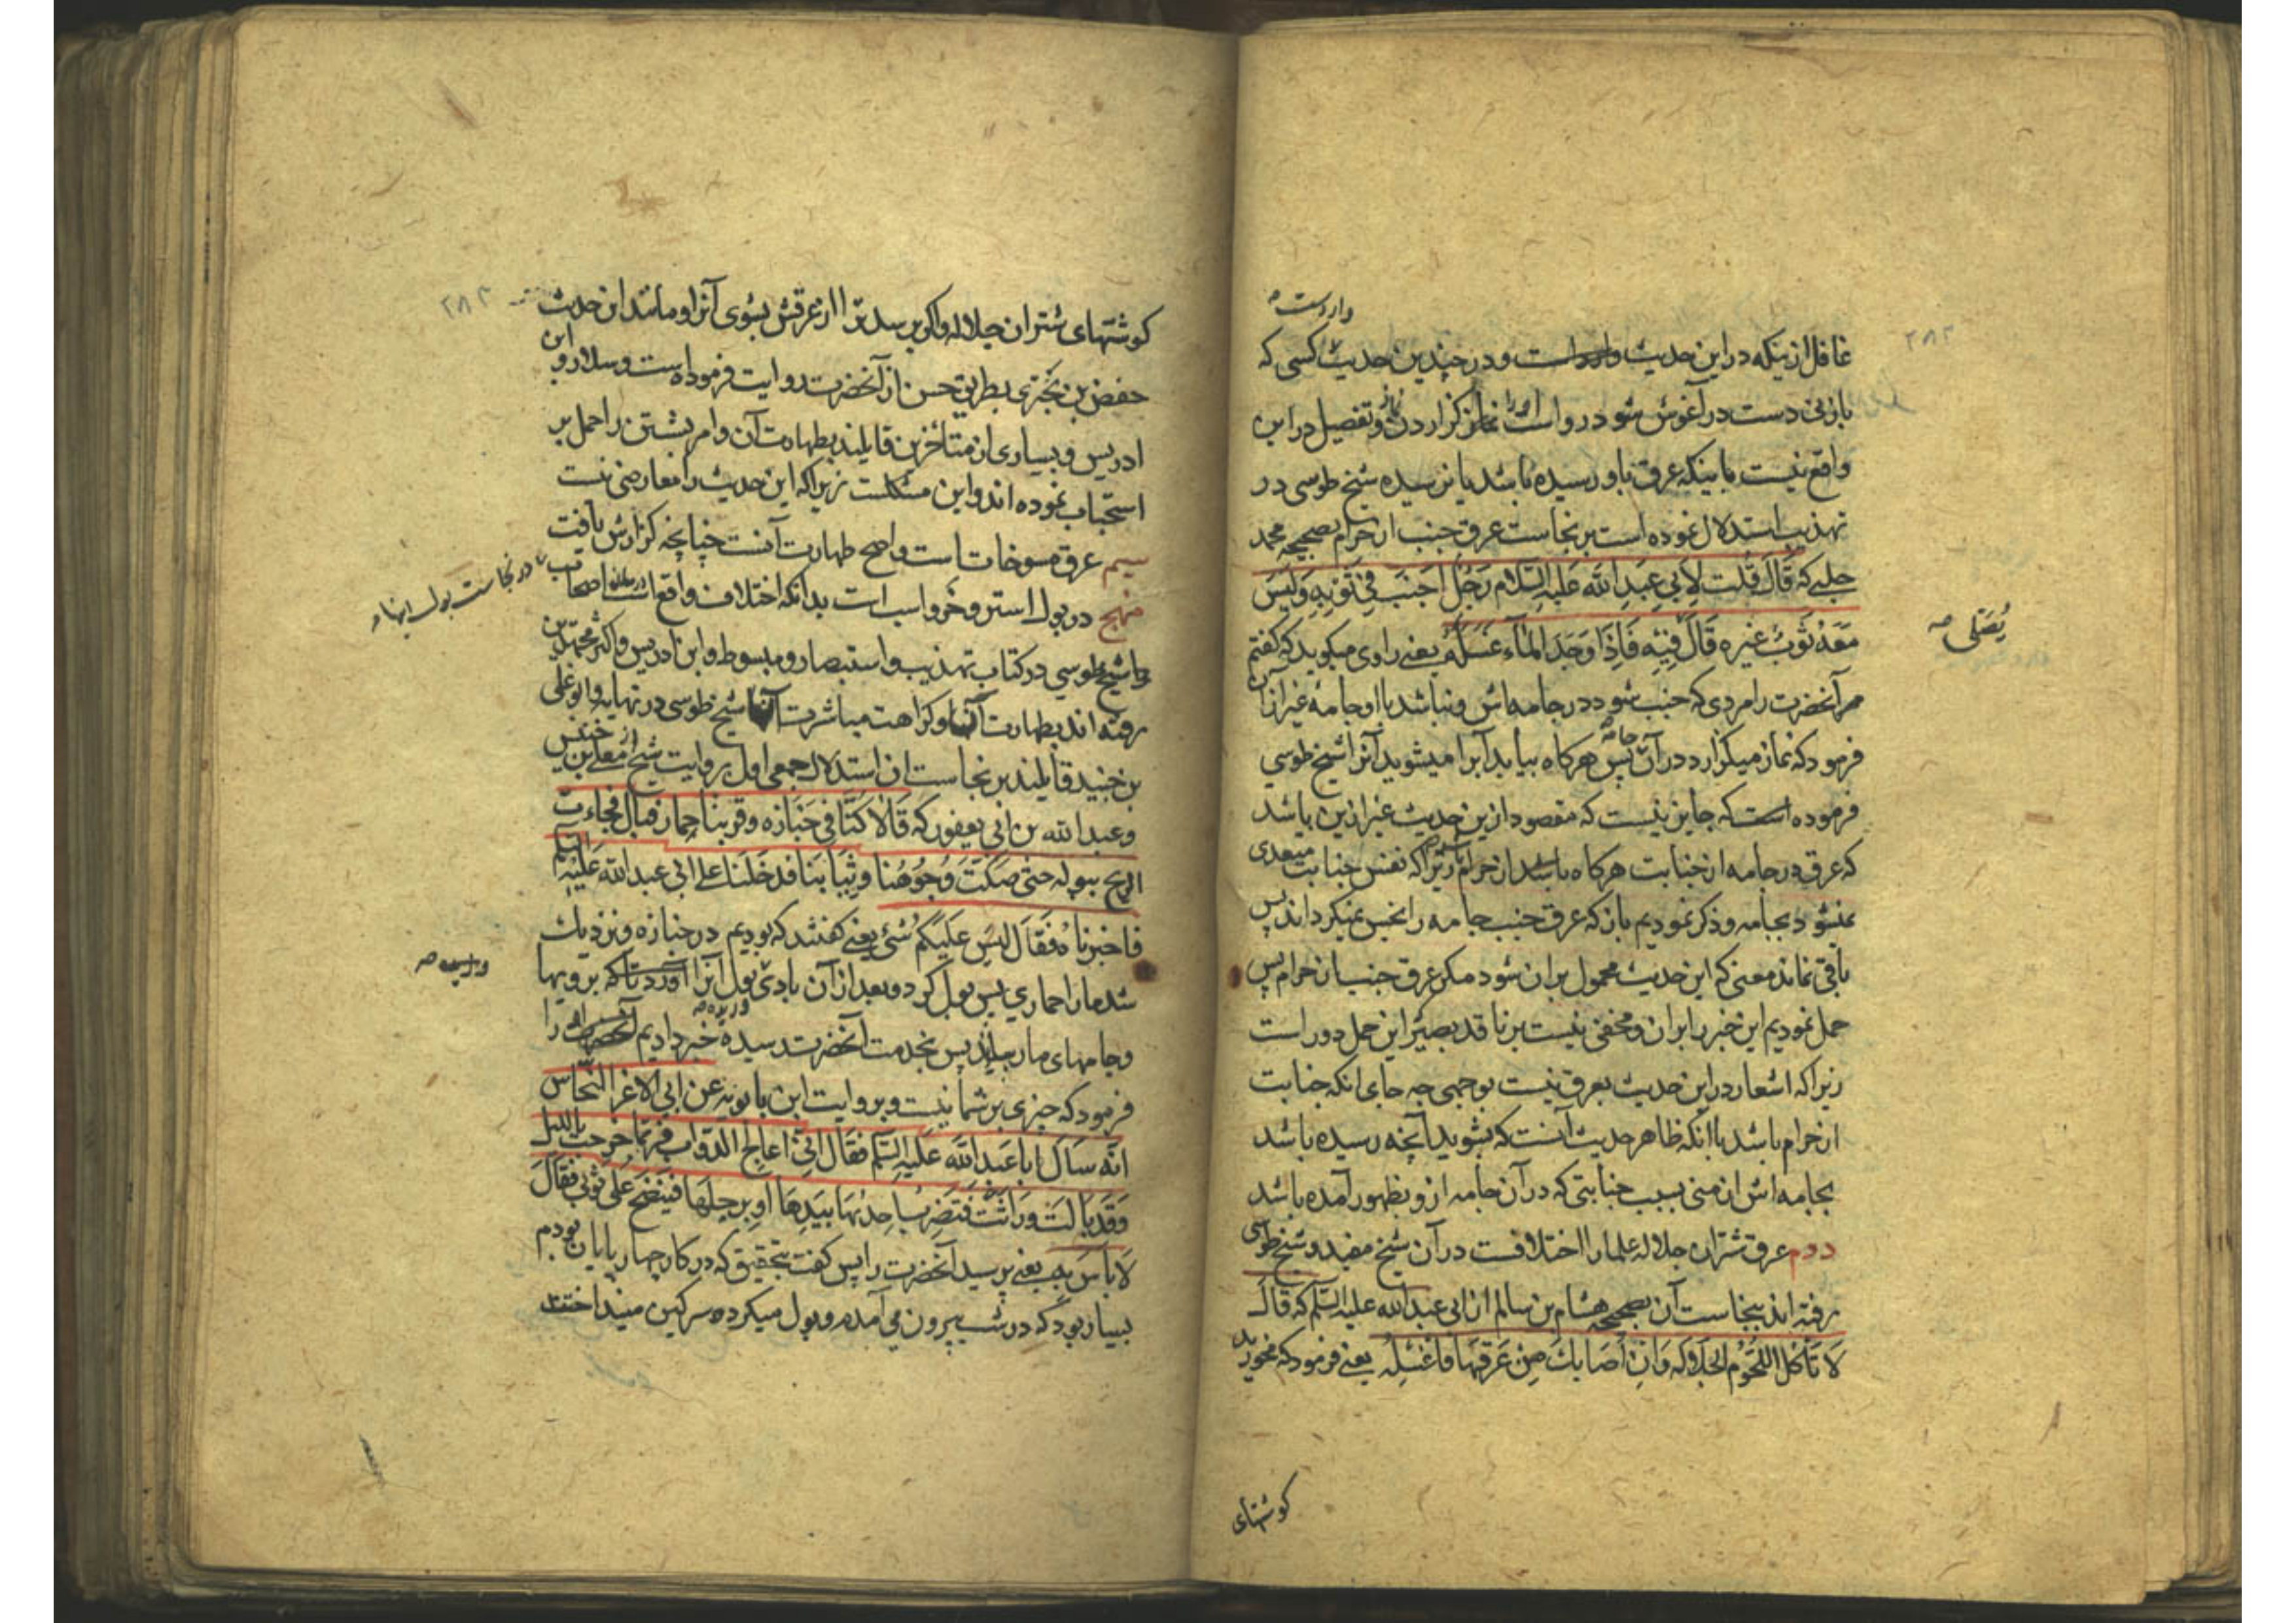 واردست
۲۸۲
غافل ازینکه در این حدیث وارد است و در چندین حدیث کسی که
بازنی دست در آغوش شود رواست نماز گزاردن و تفصیل در این
واقع نیست باینکه عرق باو رسیده باشد یا نرسیده شیخ طوسی در
تهذیب استدلال نموده است بر نجاست عرق جنب از حرام بصحیحه محمد
حلبی که قَالَ قُلت لِاَبی عَبدِ الله عَلیهِ السَّلام رَجُل اَجنَبَ فی ثَوبِه وَلَیسَ
مَعَهُ ثَوبٌ غیره قَالَ فیِه فَاِذا وَجَدَ المَاء غَسَلَهُ یعنی راوی میکوید که گفتم
یُصَلّی
مر آنحضرت را مردی که جنب شود در جامه‌اش و نباشد با او جامه غیر از آن
فرمود که نماز میکزارد در آن جامه پس هرکاه بیابد آب را میشوید آنرا شیخ طوسی
فرموده است که جایز نیست که مقصود ازین حدیث غیر ازین باشد
که عرق در جامه از جنابت هرکاه باشد از حرام زیرا که نفس جنابت متعدی
نمیشود بجامه و ذکر نمودیم باز که عرق جنب جامه را نجس نمیکرداند پس
باقی نماند معنی که این حدیث محمول بران شود مکر عرق جنب از حرام پس
حمل نمودیم این خبر را بران و مخفی نیست بر ناقد بصیر این حمل دور است
زیرا که اشعار در این حدیث بعرق نیست بوجهی چه جای انکه جنابت
از حرام باشد با انکه ظاهر حدیث آنست که بشوید آنچه رسیده باشد
بجامه‌اش از منی بسبب جنابتی که در آن جامه ازو بظهور آمده باشد
دوم عرق شتران جلاله علما را اختلافست در آن شیخ مفید و شیخ طوسی
رفته‌اند بنجاست آن بصحیحه هشام بن سالم از ابی عبدالله علیه السّلم که قال
لا تَأکل اللّحُوم الجَلاله وَاِن اَصَابَكَ مِن عَرَقِهَا فاغسِلهُ یعنی فرمود که مخورید
کوشتهای
۲۸۳
کوشتهای شتران جلاله و اکر برسد ترا از عرقش بشوی آنرا و مانند این حدیث
حفص بن بختری بطریق حسن از آنحضرت روایت فرموده است و سلار و ابن
ادریس و بسیاری از متأخرین قایلند بطهارت آن و امر بشستن را حمل بر
استحباب نموده‌اند و این مشکلست زیرا که این حدیث را معارضی نیست
سیم عرق مسوخات است و اصح طهارت آنست چنانچه کزارش یافت
منهج در بول استر و خر و اسب است بدانکه اختلاف واقع است در میان اصحاب
در نجاست بول اینها
شیخ طوسی در کتاب تهذیب و استبصار و مبسوط و ابن ادریس و اکثر مجتهدین
رفته‌اند بطهارت آنها و کراهت مباشرت آنها شیخ طوسی در نهایه و ابو علی
بن جنید قایلند بر نجاست ان استدلال جمعی اول بروایت شیخ از معلی بن خنیس
وعبدالله بن ابی یعفور که قَالَا کُنَّا فی جَنازه وقربنا حِمار فبال فجاءت
الریح ببوله حتی صَکّتَ وُجُوهَنا وثِیَابَنا فدخَلنَا علی ابی عبدالله عَلَیهِ السّلم
فاخبرناه فَقَالَ لَیسَ علَیکم شَیٔ یعنی کفتند که بودیم در جنازه و نزدیك
شد ما را حماری پس بول کرد و بعد از آن بادی بول آنرا آورد تا که برویها
وجامهای ما رسانید پس بخدمت آنحضرت رسیده خبر دادیم آنحضرت را
فرمود که چیزی بر شما نیست وبروایت ابن بابویه عن ابی الاغرّ النّحّاس
انّه سَاَلَ ابا عَبدالله عَلَیهِ السّلم فقَال انّی اُعالج الدّوابّ فربّما خرجت باللیل
وَقَد بَالَت وَرَاثَت فتَضرِبُ احدٰیها بیَدِهَا او برجلهَا فینَضح عَلَی ثَوبی فقَالَ
لا بَاسَ بِه یعنی پرسید آنحضرت را پس کفت بتحقیق که در کار چهارپایان بودم
بسیار بود که در شب بیرون می‌آمدم و بول میکرده سرکین مینداختند